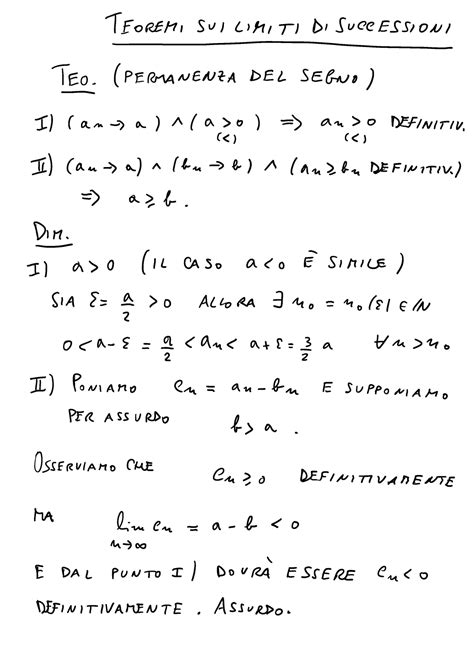 TEOREMI SUI LIMITI DI SUCCESSIONI
TEO. (PERMANENZA DEL SEGNO)
I) (an → a) ∧ (a > 0) ⇒ an > 0 DEFINITIV.
(<) (<)
II) (an → a) ∧ (bn → b) ∧ (an ≥ bn DEFINITIV.)
⇒ a ≥ b.
DIM.
I) a > 0 (IL CASO a < 0 È SIMILE)
SIA ε = a/2 > 0 ALLORA ∃ n0 = n0(ε) ∈ ℕ
0 < a - ε = a/2 < an < a + ε = 3/2 a ∀ n > n0
II) PONIAMO cn = an - bn E SUPPONIAMO
PER ASSURDO b > a.
OSSERVIAMO CHE cn ≥ 0 DEFINITIVAMENTE
MA lim cn = a - b < 0
n→∞
E DAL PUNTO I) DOVRÀ ESSERE cn < 0
DEFINITIVAMENTE. ASSURDO.